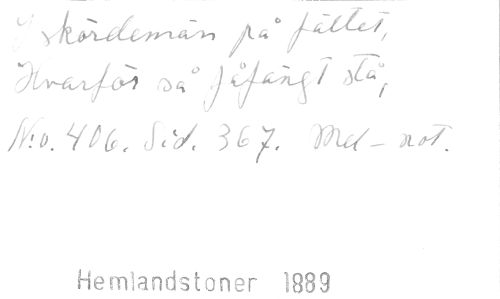 I skördemän på fältet,
Hvarför så fåfängt stå,
N:o. 406. Sid. 367. Mel-not.
Hemlandstoner 1889